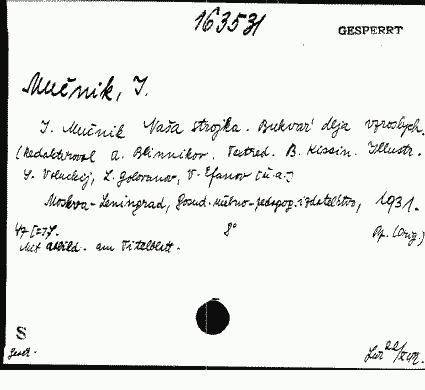 163531
GESPERRT
Mučnik, I.
I. Mučnik Naša strojka. Bukvar' dlja vzroslych.
(Redaktiroval A. Blinnikov. Textred. B. Kissin. Illustr.
L. Golovanov, V. Efanov [u.a.])
Moskva-Leningrad, Gosud. učebno-pedagog. izdatel'stvo, 1931.
47 S. 8° Pp. (Orig.)
Mit Abbild. am Titelblatt.
S